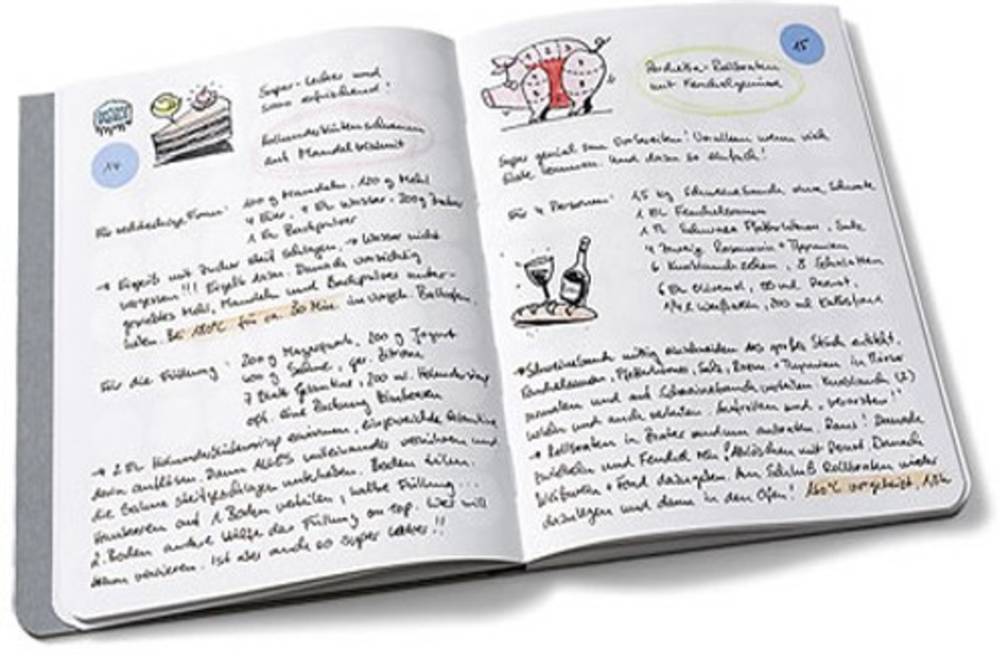 14
Super-lecker und
sooo erfrischend!
Holunderblütenschaum
auf Mandelbiskuit
Für rechteckige Form:
100 g Mandeln, 100 g Mehl
4 Eier, 4 EL Wasser, 200 g Zucker
1 TL Backpulver
→ Eigelb mit Zucker steif schlagen, → Wasser nicht
vergessen!!! Danach vorsichtig
gesiebtes Mehl, Mandeln und Backpulver unter-
heben. Bei 180°C für ca. 30 Min. im vorgeh. Backofen.
Für die Füllung:
200 g Magerquark, 200 g Jogurt
400 g Sahne, ger. Zitrone
7 Blatt Gelantine, 200 ml. Holundersirup
opt. eine Packung
→ 2 EL Holunderblütensirup erwärmen, eingeweichte Gelantine
darin auflösen. Dann ALLES untereinander verrühren und
die Sahne steifgeschlagen unterheben. Boden
auf 1 Boden verteilen, halbe Füllung...
2. Boden andre Hälfte der Füllung on top. Wer will
kann variieren. Ist aber auch so super lecker!!
15
Porchetta-Rollbraten
mit Fenchelgemüse
Super genial zum Vorbereiten! Vor allem wenn viele
Gäste kommen. Und dazu so einfach!
Für 4 Personen:
1,5 kg Schweinebauch ohne Schwarte
1 EL Fenchelsamen
1 TL Schwarze Pfefferkörner, Salz
4 Zweige Rosmarin + Thymian
6 Knoblauchzehen, 8 Schalotten
6 EL Olivenöl, 100 ml Pernot,
1/4 l Weißwein, 200 ml Kalbsfond
→ Schweinebauch mittig einschneiden das großes Stück entsteht.
Fenchelsamen, Pfefferkörner, Salz, Rosm. + Thymian in Mörser
und auf Schweinebauch verteilen. Knoblauch (2)
und auch verteilen. Aufrollen und
→ Rollbraten in Bräter rundum anbraten. Raus! Danach
Zwiebeln und Fenchel rein! Ablöschen mit Pernot. Danach
Weißwein + Fond dazugeben. Am Schluß Rollbraten wieder
dazulegen und dann in den Ofen! 160°C vorgeheizt, 1,5 h